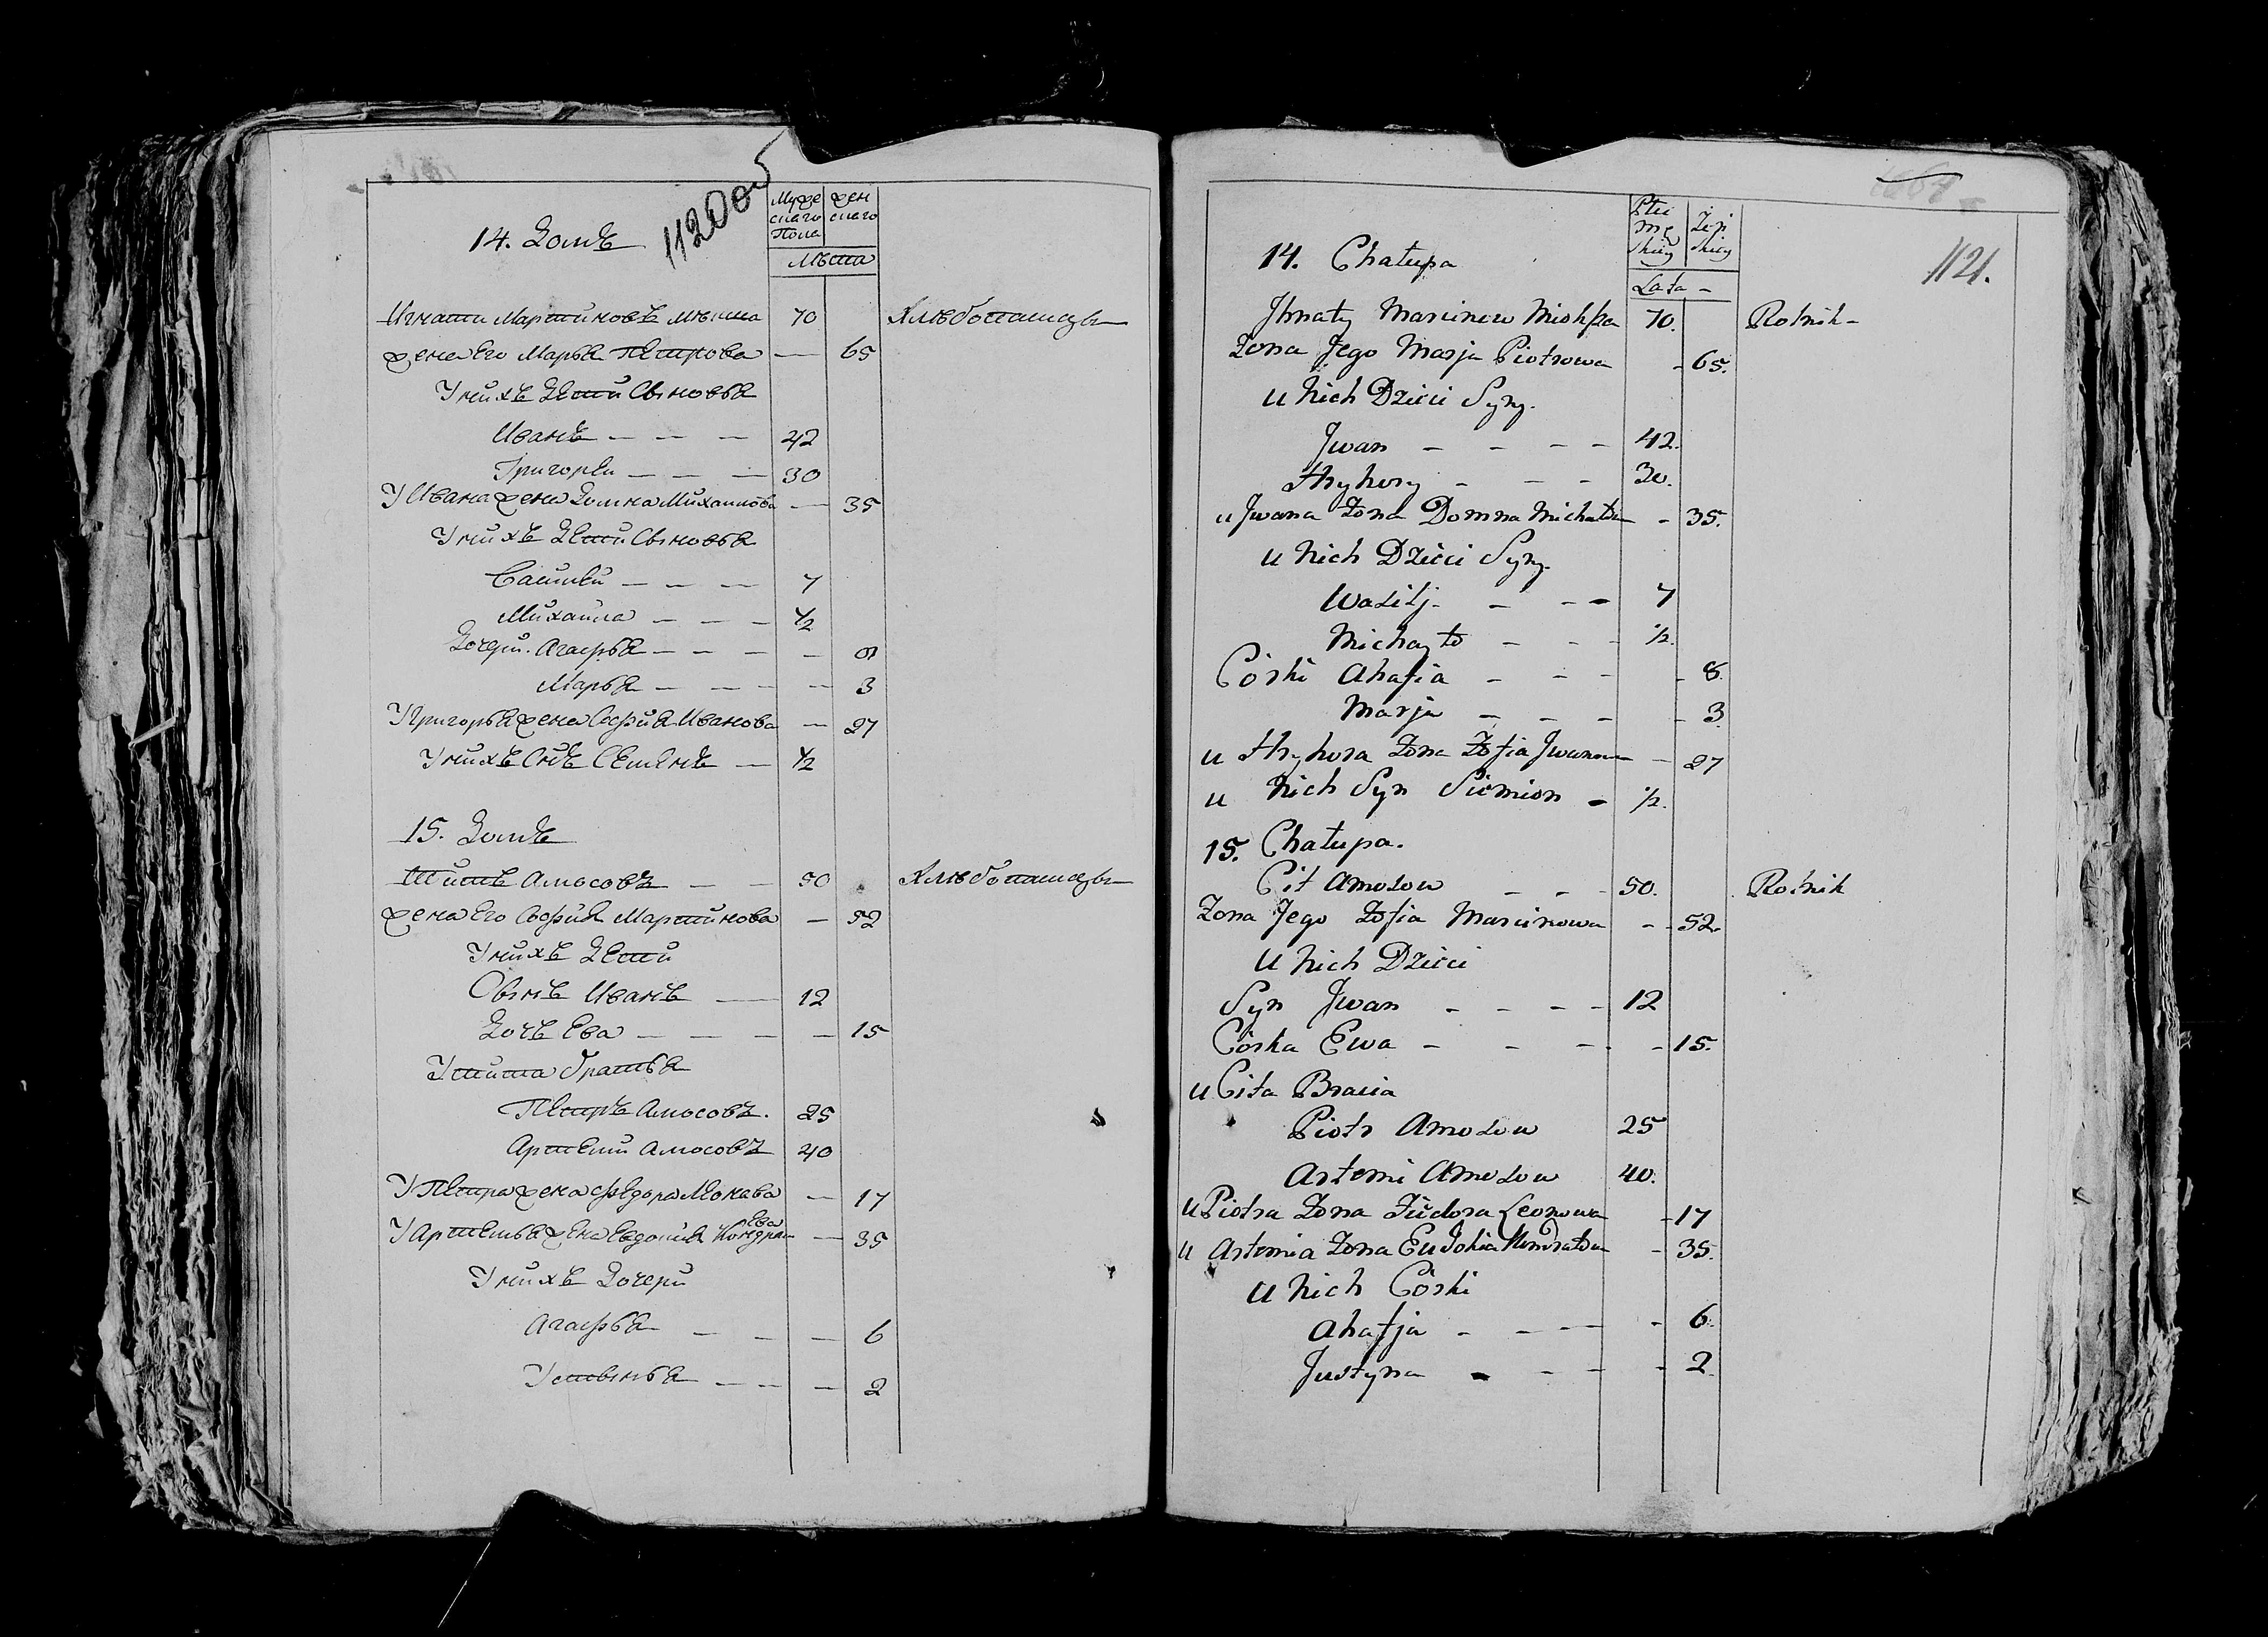 1120 об
Мужескаго Пола
женскаго
Лѣта
14. Домъ
Игнати Мартиновъ Мишка 70 Хлѣбопашецъ
жена Его Марья Петрова — 65
У нихъ Дети Сыновья
Иванъ — — — 42
Григорей — — — 30
У Ивана жена Домна Михаилова — 35
У нихъ Дети Сыновья
Василей — — — 7
Михаила — — — 1/2
Дочери. Агафья — — — — 8
Марья — — — — 3
У Григорья жена София Иванова — 27
У нихъ Снъ Семенъ — 1/2
15. Домъ
Титъ Амосовъ — — 50 Хлѣбопашецъ
жена Его София Мартинова — 52
У нихъ Дети
Сынъ Иванъ — 12
Дочь Ева — — — — 15
У Тита братья
Петръ Амосовъ. 25
Артеми Амосовъ 40
У Петра жена федора Леонава — 17
У Артемья жена Евдокия Кондратева — 35
У нихъ Дочери
Агафья — — — 6
Устынья — — — 2
1121.
Płci męskiey
Żeńskiey
Lata –
14. Chałupa
Ihnaty Marcinow Mishka 70. Rolnik –
Żona Jego Marja Piotrowa - 65.
u Nich Dzieci Syny.
Jwan – – – – 42.
Hryhory – – – 30.
u Jwana Żona Domna Michałowa - 35.
u Nich Dzieci Syny.
Wasilj – – – 7
Michayło – – – 1/2.
Córki Ahafia – – – - 8.
Marja – – – - 3.
u Hryhora Żona Zofia Jwanowa - 27
u Nich Syn Siemion – 1/2.
15. Chałupa.
Cit Amosow – – – 50. Rolnik
Żona Jego Zofia Marcinowa - - 52.
u Nich Dzieci
Syn Jwan – – – – 12
Córka Ewa – – – - - 15.
u Cita Bracia
Piotr Amosow 25
Artemi Amosow 40.
u Piotra Żona Fiedora Leonowa - 17
u Artemia Żona Eudokia Kondratowa - 35.
u Nich Córki
Ahafja – – – - 6.
Justyna – – – - 2.